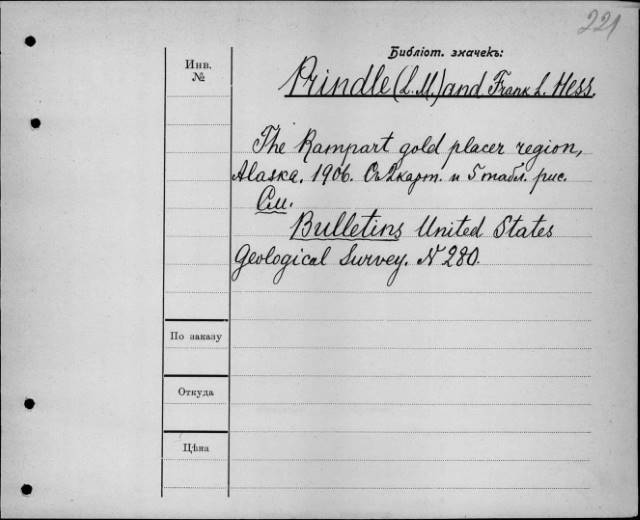 221
Библiот. значекъ:
Инв.
№
Prindle (L. M.) and Frank L. Hess.
The Rampart gold placer region,
Alaska. 1906. Съ 2 карт. и 5 табл. рис.
См.
Bulletins United States
Geological Survey. N 280.
По заказу
Откуда
Цѣна